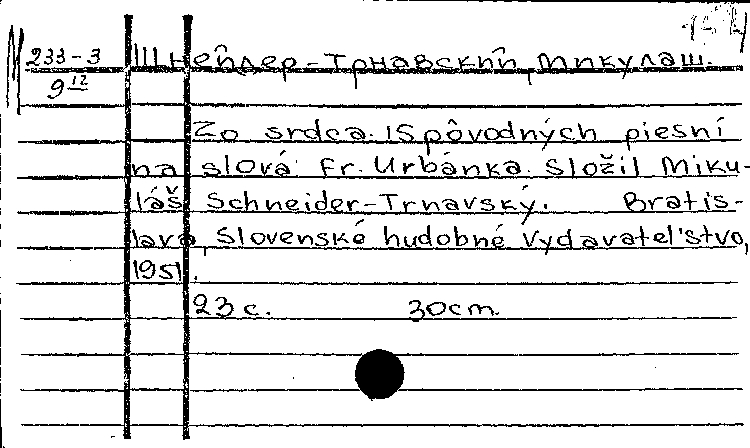 М 233-3 Шнейдер-Трнавский, Микулаш.
9 12
Zo srdca. 15 pôvodných piesní
na slová Fr. Urbánka. Složil Miku-
láš Schneider-Trnavský. Bratis-
lava, Slovenské hudobné vydavatel'stvo,
1951.
23 c. 30cm.